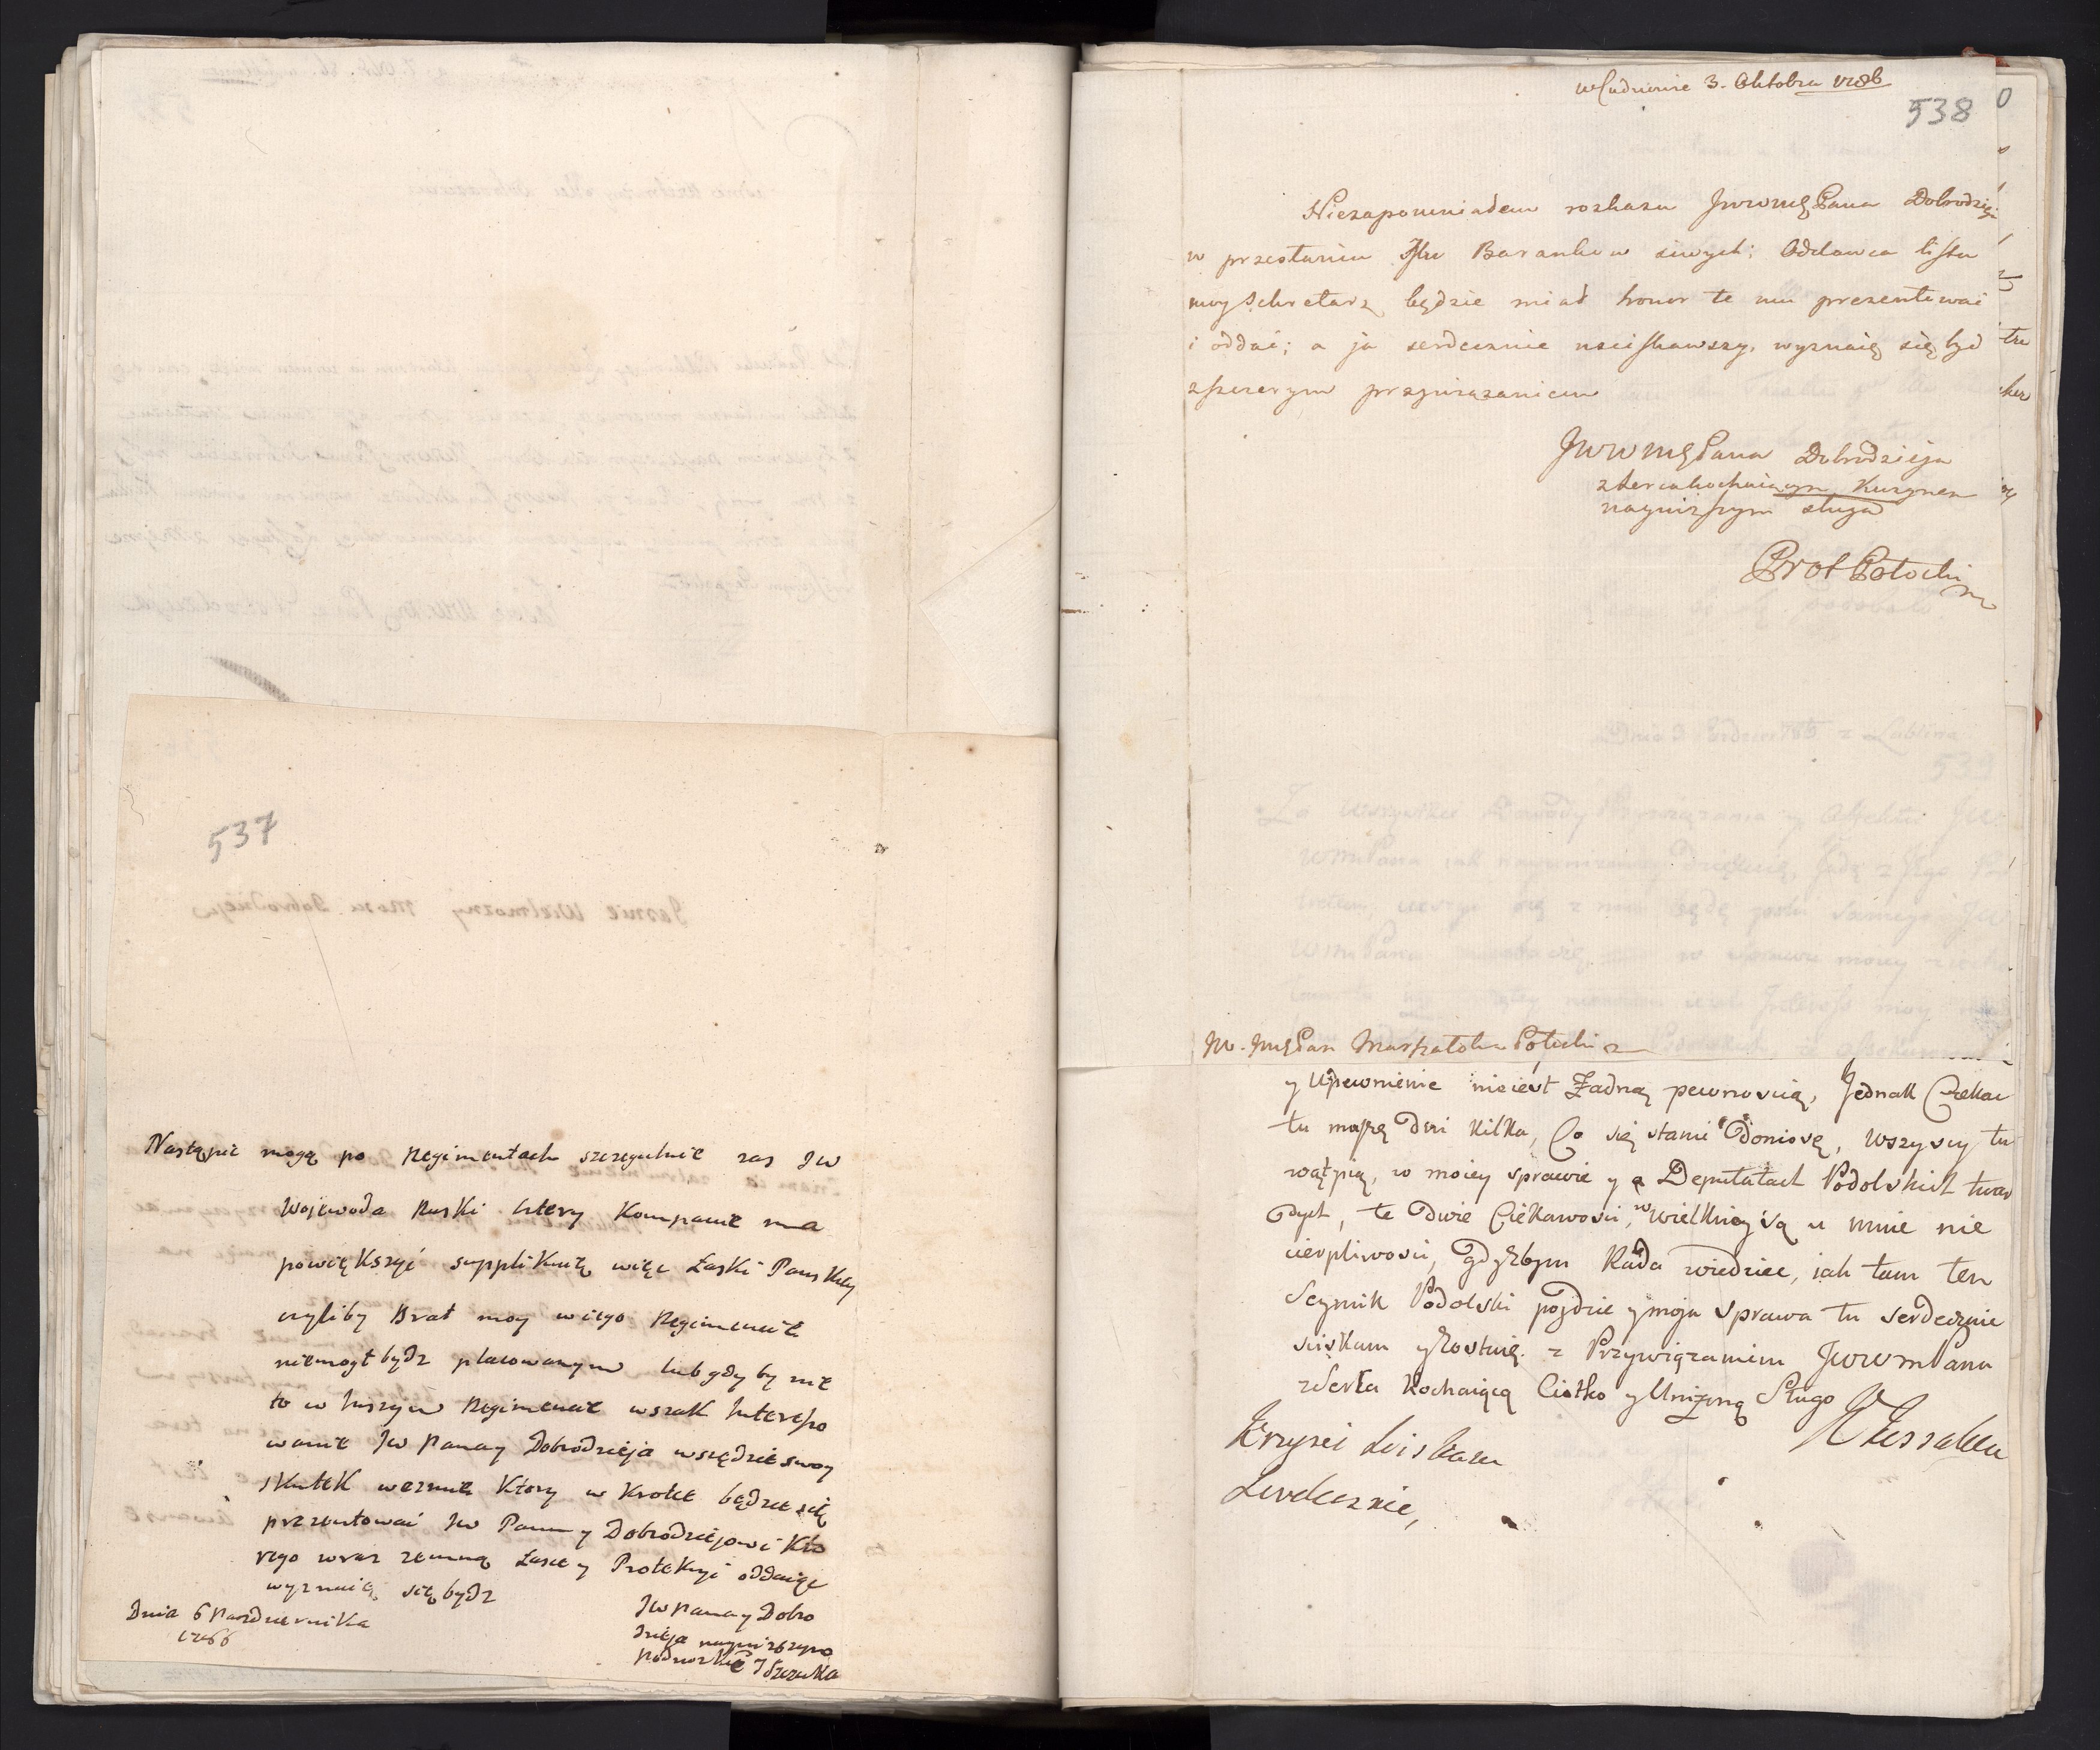 537
Nastąpić mogą po Regimentach szczegulnie zas JW
Wojewoda Ruski ktory Kompanie ma
powiększyć supplikuię więc Łaski Panskiey
czyliby Brat moy w iego Regimencie
niemogł bydz placowanym lub gdy by nie
to w Inszym Regimencie wszak Interesso
wanie JW Pana y Dobrodzieja wszędzie swoy
skutek wezmie Ktory w Krotce będzie się
prezentować JW Panu y Dobrodziejowi Kto
rego wraz zemną Łasce y Protekcyi oddaiąc
wyznaię się bydz
Dnia 6 Pazdziernika
1766
JW Pana y Dobro
dzieja nayniższym
Podnozkie J Szczuka
w Cudnowie 3. Oktobra 1786
538
Niezapomniałem rozkazu JWWMę Pana Dobrodzieja
w przesłaniu Baranków siwych; Oddawca listu
moy Sekretarz będzie miał honor te mu prezentować
i oddać; a ja serdecznie usciskawszy, wyznaię się być
z szczerym przywiązaniem
JWWMę Pana Dobrodzieja
z serca kochaiącym Kuzynem
nayniższym sługą
Prot Potocki
JW. Imę Pan Marszałek Potocki
y Upewnienie nieiest Żadną pewnoscią, Jednak Czekac
tu muszę Dni Kilka, Co się stanie Doniosę, wszyscy tu
wątpią, w moiey sprawie y o Deputatach Podolskich twar
dych, te Dwie Ciekawosci, w wielkiey są u mnie nie
cierpliwosci, gdyżbym Rada wiedziec, iak tam ten
Seymik Podolski pojdzie y moja sprawa tu serdecznie
sciskam y Zostaię z Przywiązaniem JWWMPana
z Serca Kochaiącą Ciotko y Uniżoną Sługo
Krzysci sciskam
Serdecznie,